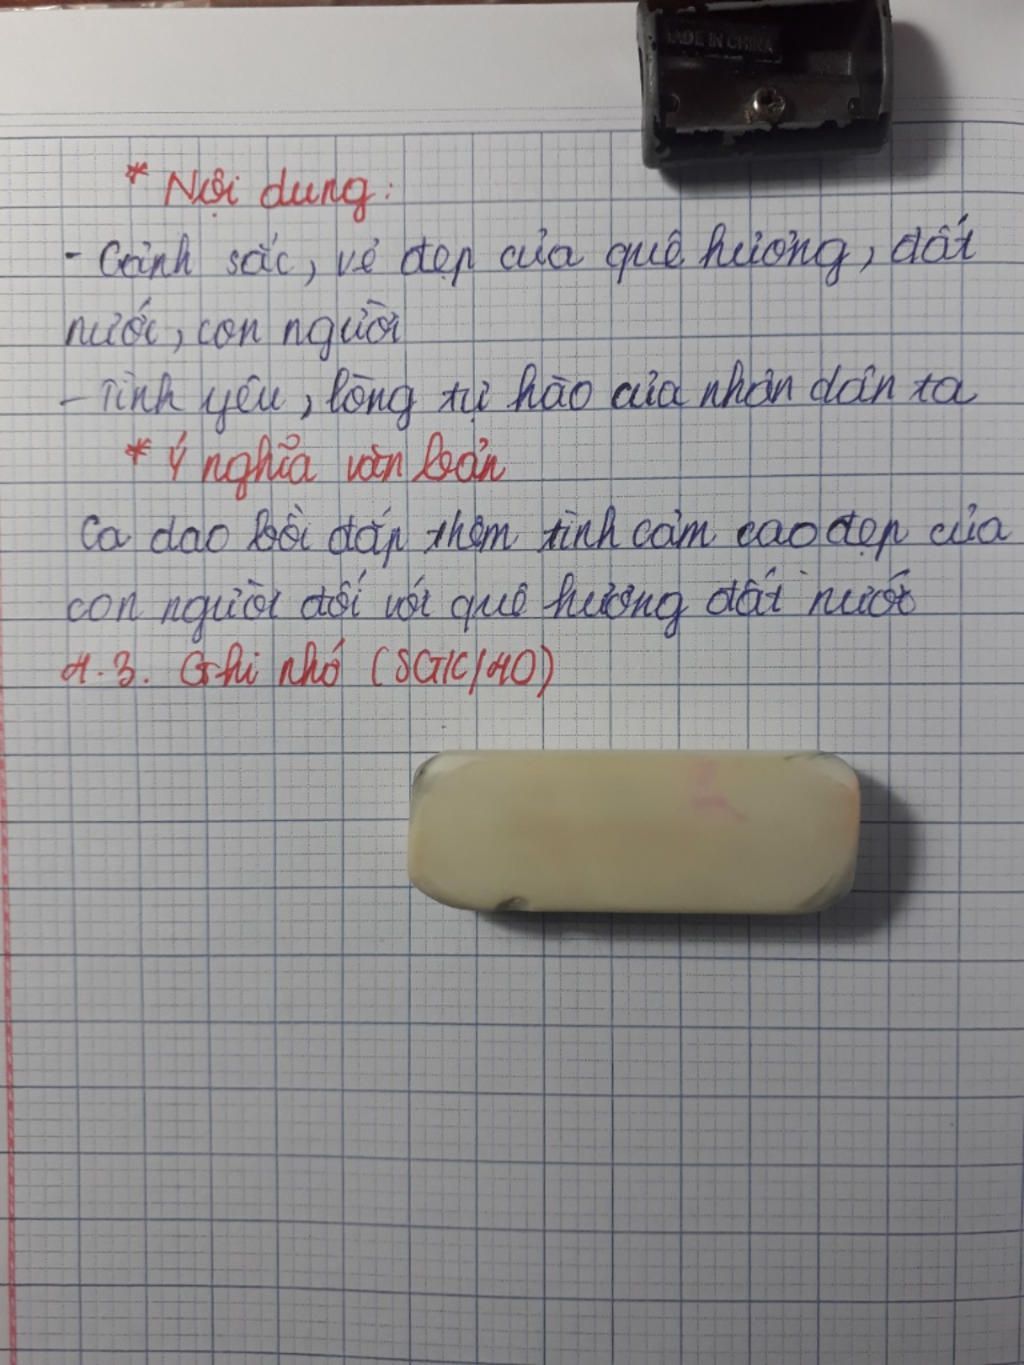 MADE IN CHINA
* Nội dung:
- Cảnh sắc, vẻ đẹp của quê hương, đất
nước, con người
- Tình yêu, lòng tự hào của nhân dân ta
* Ý nghĩa văn bản
Ca dao bồi đắp thêm tình cảm cao đẹp của
con người đối với quê hương đất nước
4.3. Ghi nhớ (SGK/40)